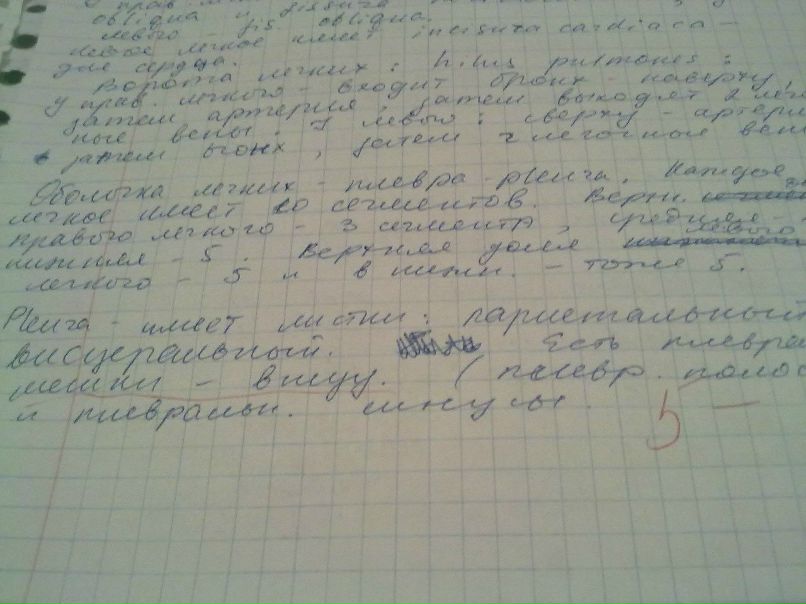 У прав. fissura
obliqua и fissura
левого - fis. obliqua.
левое легкое имеет incisura cardiaca -
для сердца.
Ворота легких: hilus pulmones:
у прав. легкого - входит бронх - наверху,
затем артерия, затем выходят 2 лего
ные вены. У левого: сверху - артери
затем бронх, затем 2 легочные вены
Оболочка легких - плевра - pleura. Каждое
легкое имеет 10 сегментов. Верхн.
правого легкого - 3 сегмента, средняя
нижняя - 5. Верхняя доля левого
легкого - 5 и в нижн. - тоже 5.
Pleura - имеет листки: париетальный
висцеральный. Есть плевра
мешки - внизу. (плевр. полос
и плевральн. синусы.
5 -